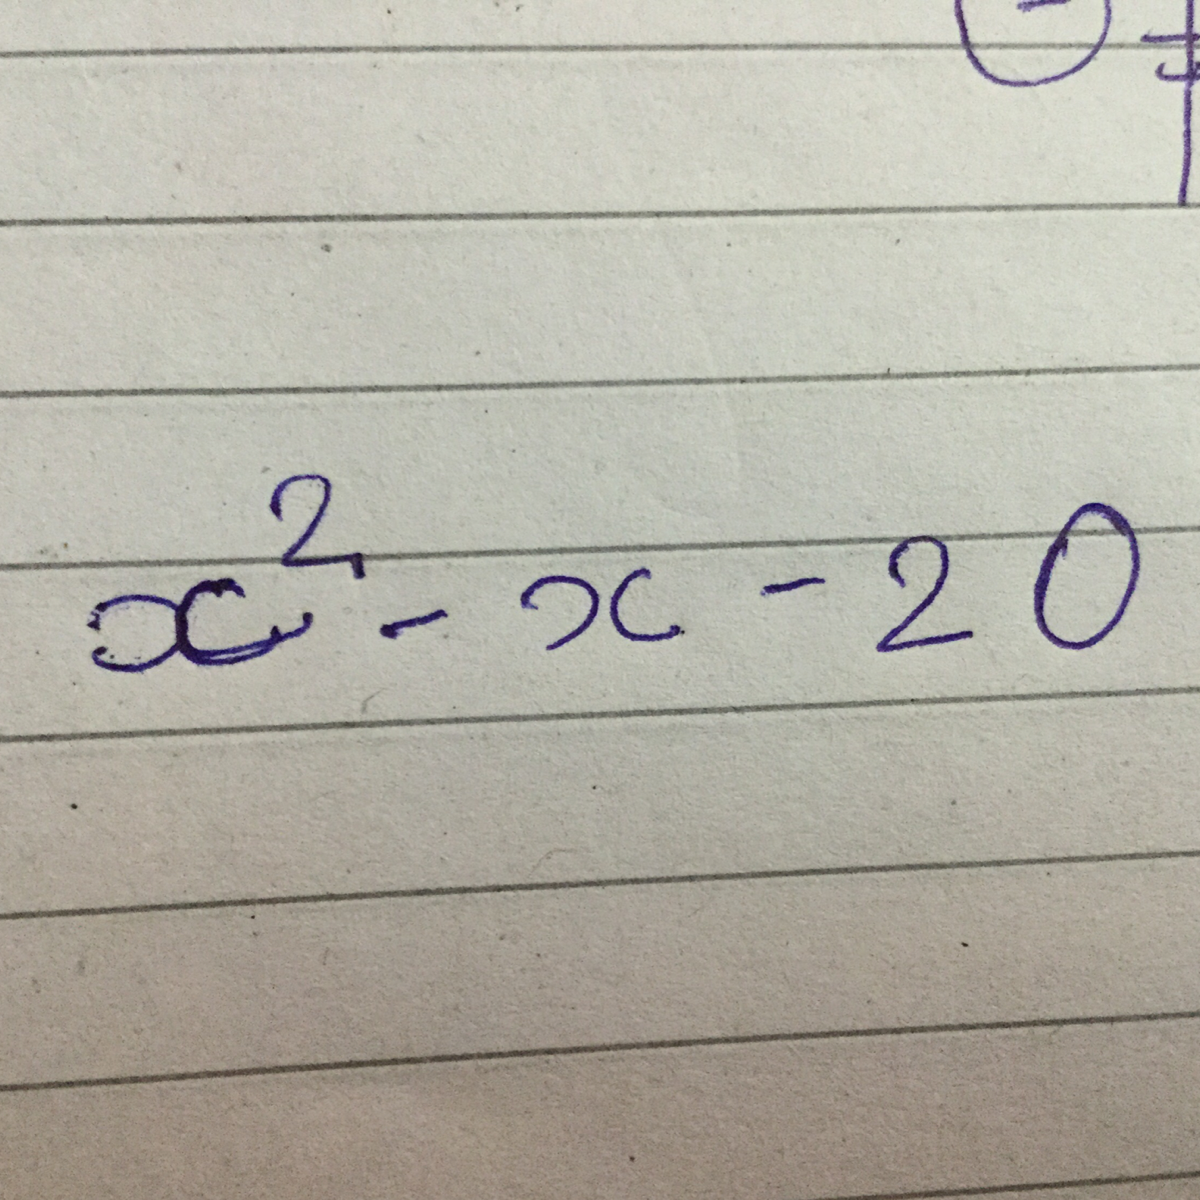 x² - x - 20